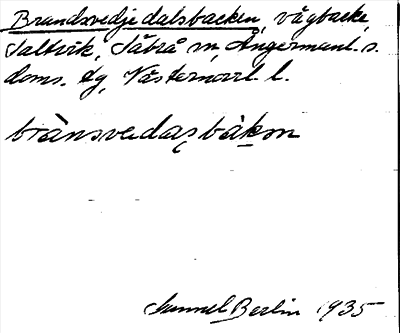 Brandsvedje dalsbacken, vägbacke,
Saltvik, Säbrå sn, Ångermanl. s.
doms. dg, Västernorrl. l.
brànsvedasbàkən
Samuel Berlin 1935